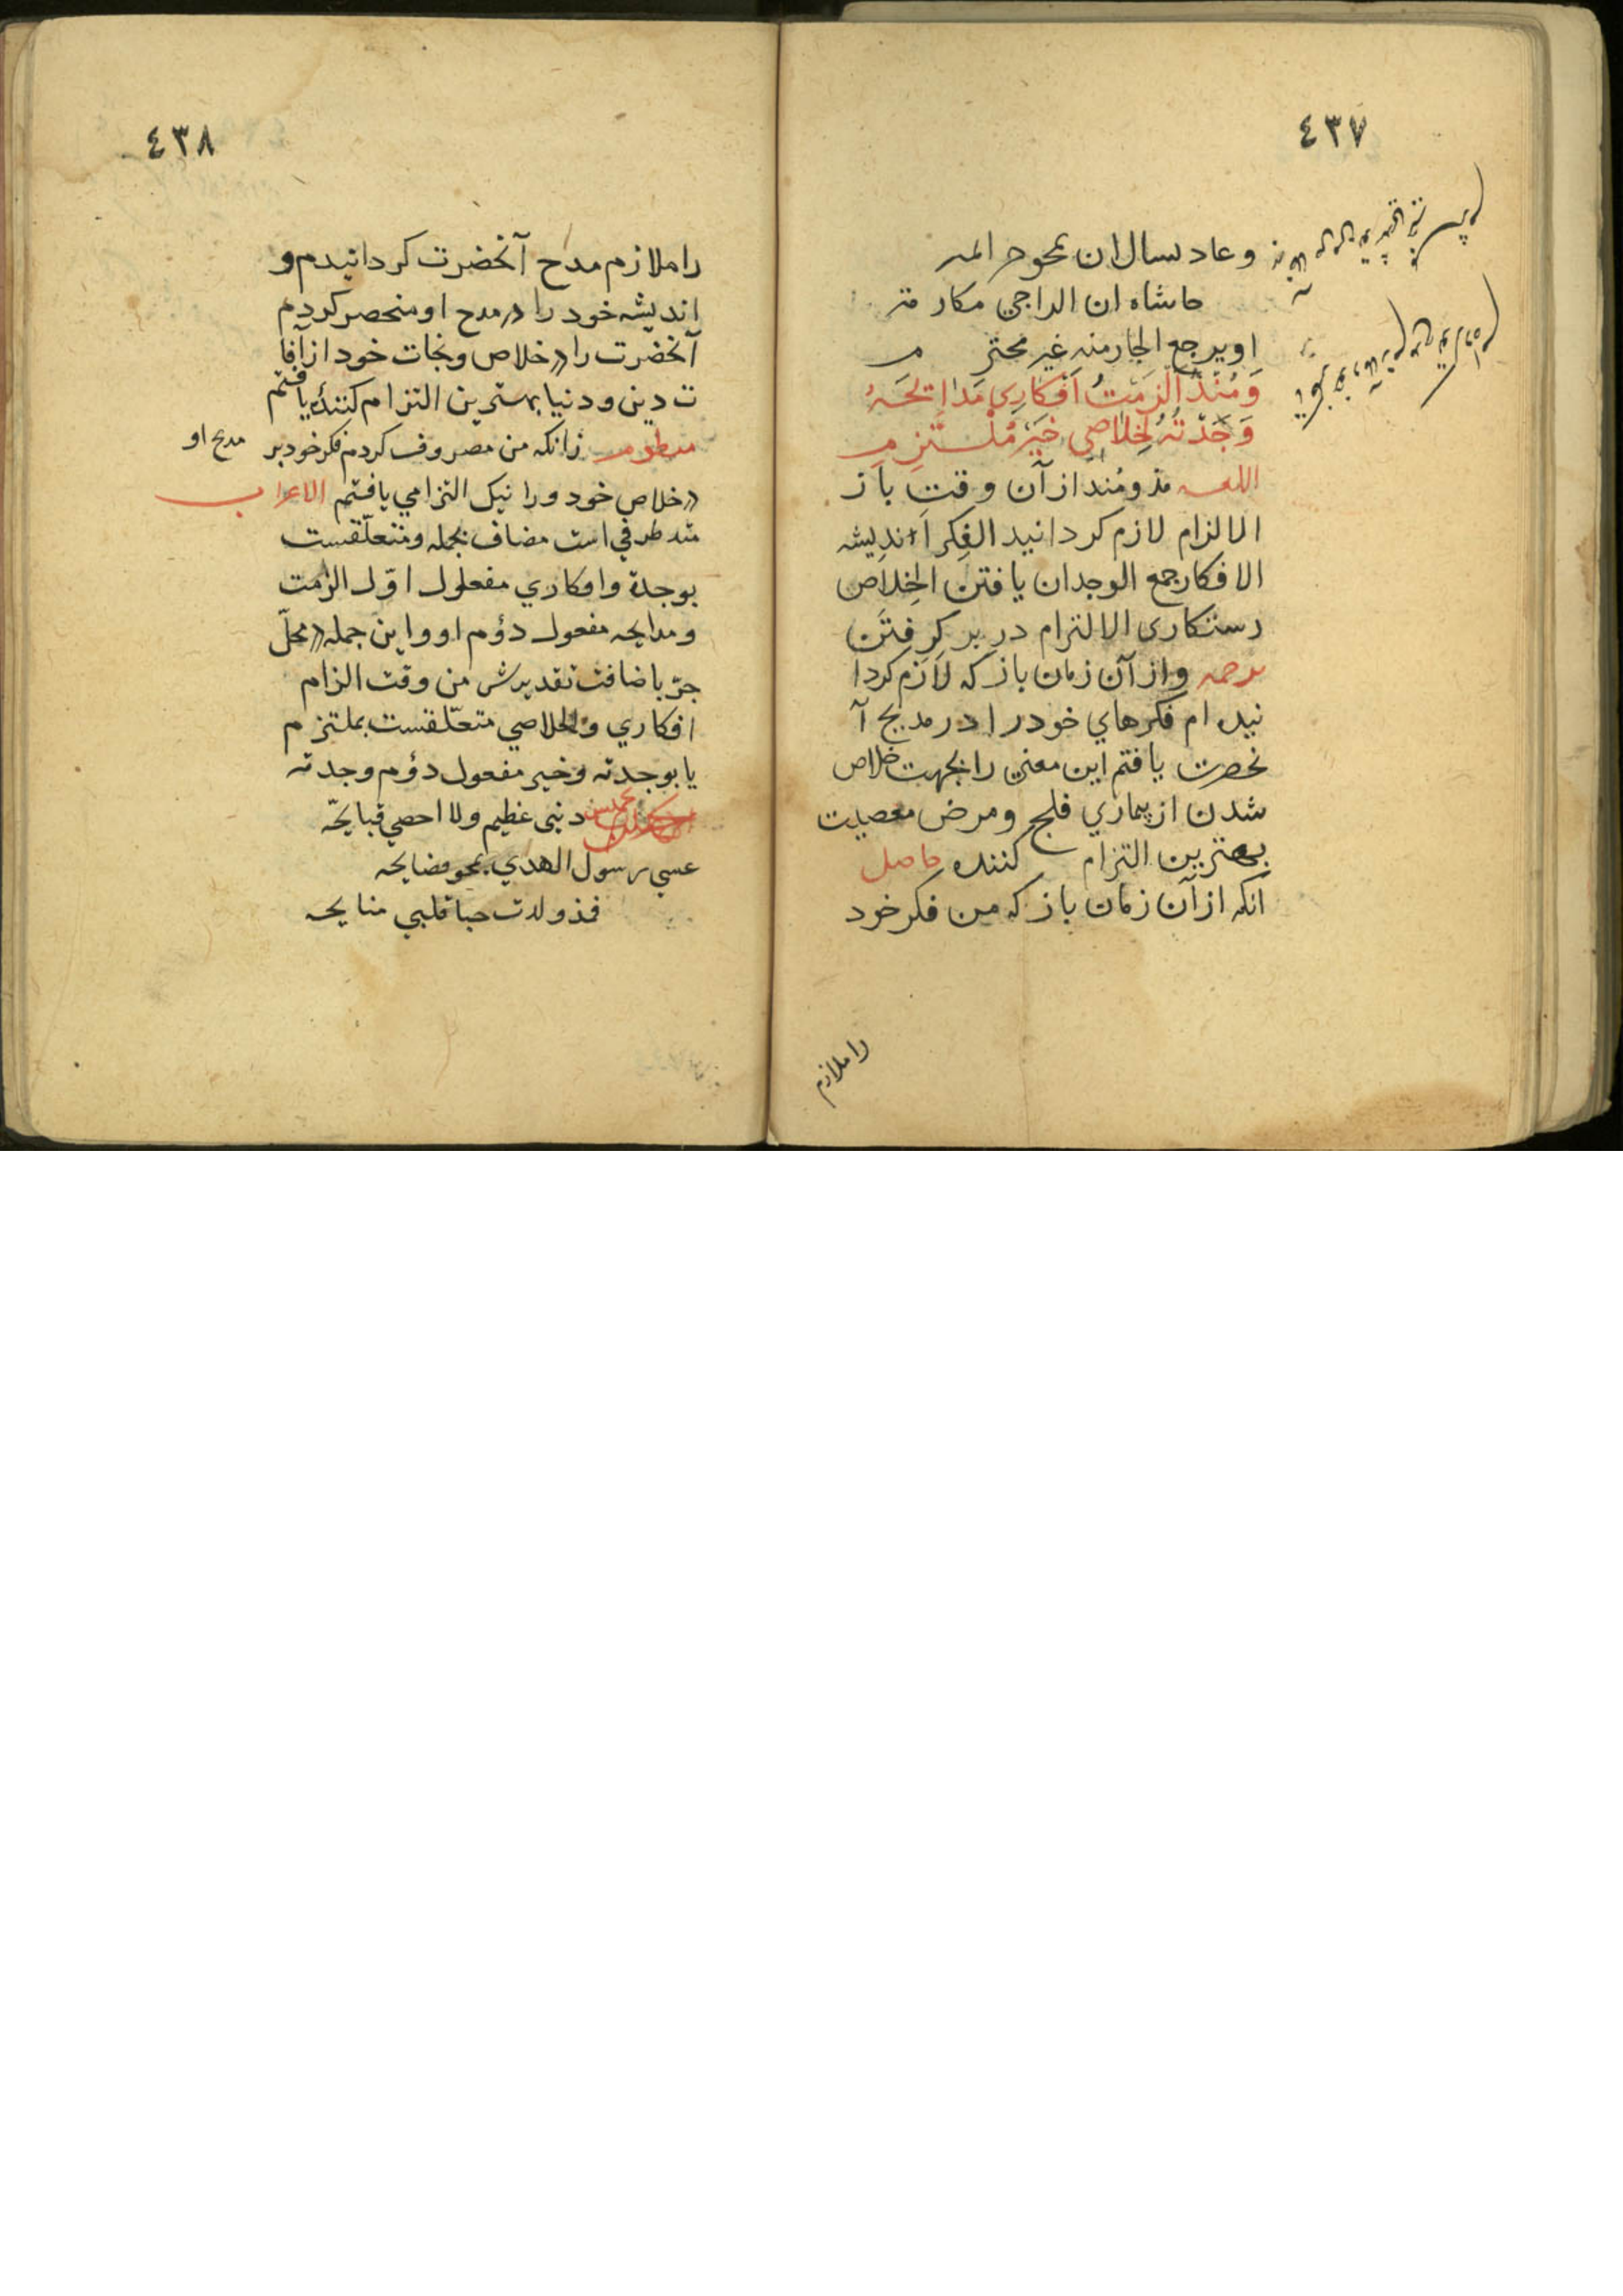 ٤٣٧
وعاد يسال ان يمحو
حاشاه ان الراجى مكارمه
او يرجع الجار منه غير محترم
وَمُنْذُ اَلْزَمْتُ اَفْكَارِي مَدَايِحَهُ
وَجَدْتُهُ لِخَلَاصِي خَيْرَ مُلْتَزِمِ
اللغه مذ ومنذ از آن وقت باز
الالزام لازم كردانيد الفكر انديشه
الافكار جمع الوجدان يافتن الخلاص
رستكارى الالتزام در بر كرفتن
ترجمه واز آن زمان باز كه لازم كردا
نيده ام فكرهاي خود را در مديح آ
نحضرت يافتم اين معنى را بجهت خلاص
شدن از بيماري فلج ومرض معصيت
بهترين التزام كننده حاصل
آنكه از آن زمان باز كه من فكر خود
را ملازم
٤٣٨
را ملازم مدح آنحضرت كردانيدم و
انديشه خود را در مدح او منحصر كردم
آنحضرت را در خلاص ونجات خود از آفا
ت دين ودنيا بهترين التزام كننده يافتم
منظومه زانكه من مصروف كردم فكر خود بر مدح او
در خلاص خود ورا نيك التزامي يافتم الاعراب
منذ ظرفي است مضاف بجمله ومتعلّقست
بوجدة وافكاري مفعول اوّل الزمت
ومدايحه مفعول دؤم او واين جمله در محلّ
جرّ باضافت تقديرش من وقت الزام
افكاري ولخلاصي متعلّقست بملتزم
يا بوجدته وخير مفعول دؤم وجدته
تخميس ذنبى عظيم ولا احصي قبايحه
عسى رسول الهدي يمحو فضايحه
فمذ ولدت حبا قلبي منايحه